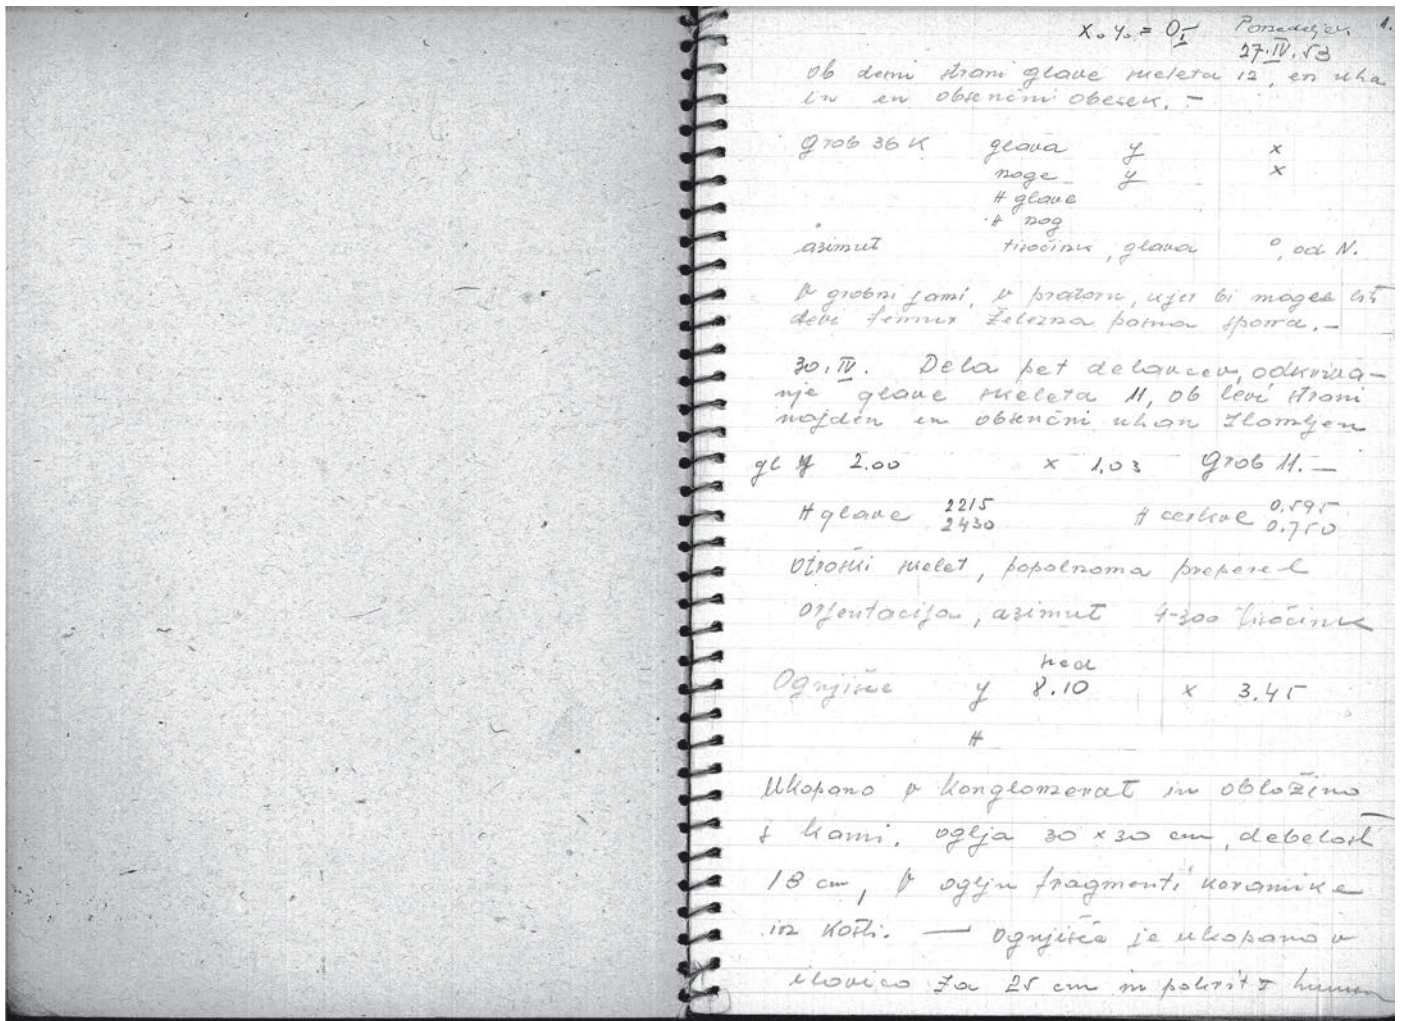 x. y. = 0 Ponedeljek 1.
27.IV.53
ob desni strani glave skeleta 12, en uha
in en obsenčni obesek. –
Grob 36 K glava y x
noge y x
H glave
H nog
azimut tisočink, glava °, od N.
V grobni jami, v prostoru, kjer bi mogel biti
levi femur železna pasna spona. –
30. IV. Dela pet delavcev, odkriva-
nje glave skeleta 11, ob levi strani
najden en obsenčni uhan zlomljen
gl y 2.00 x 1.03 Grob 11. –
H glave 2215 H cerkve 0.595
2430 0.750
otroški skelet, popolnoma preperel
orjentacija, azimut 4-300 tisočink
Ognjišče y 8.10 x 3.45
H
Ukopano v konglomerat in obloženo
s kamni, oglja 30 x 30 cm, debelost
18 cm, V oglju fragmenti keramike
in kosti. — Ognjišče je ukopano v
ilovico za 25 cm in pokrit z humusom